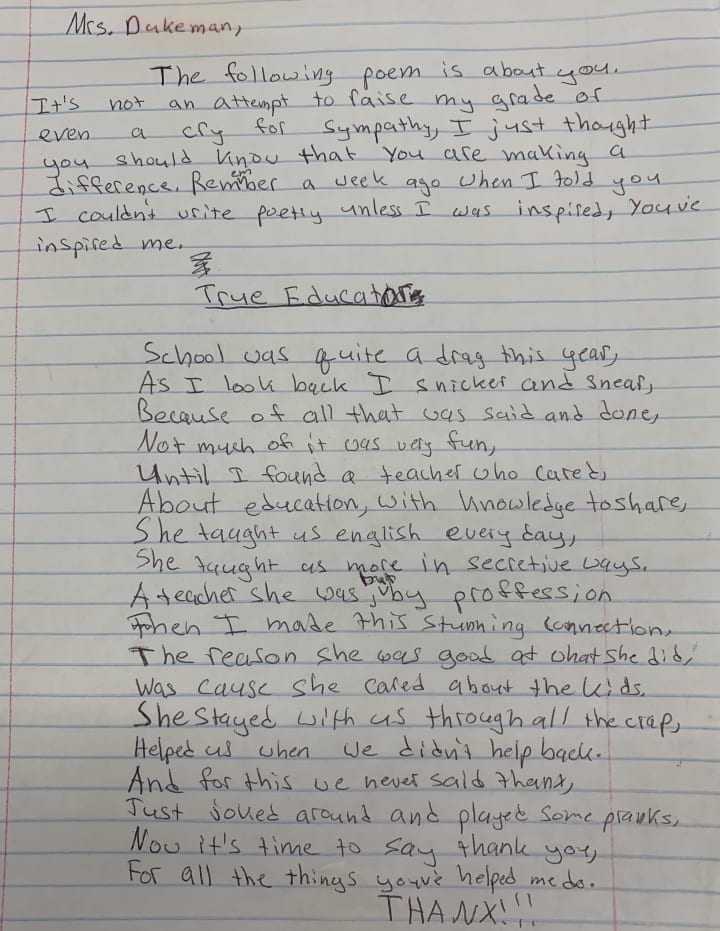 Mrs. Dukeman,
The following poem is about you.
It's not an attempt to raise my grade or
even a cry for sympathy, I just thought
you should know that you are making a
difference. Remember a week ago when I told you
I couldn't write poetry unless I was inspired, you've
inspired me.
True Educator
School was quite a drag this year,
As I look back I snicker and snear,
Because of all that was said and done,
Not much of it was very fun,
Until I found a teacher who cared,
About education, with knowledge to share,
She taught us english every day,
She taught us more in secretive ways.
A teacher she was but by proffession
Then I made this stunning connection,
The reason she was good at what she did,
Was cause she cared about the kids.
She stayed with us through all the crap,
Helped us when we didn't help back.
And for this we never said thanx,
Just joked around and played some pranks,
Now it's time to say thank you,
For all the things you've helped me do.
THANX!!!